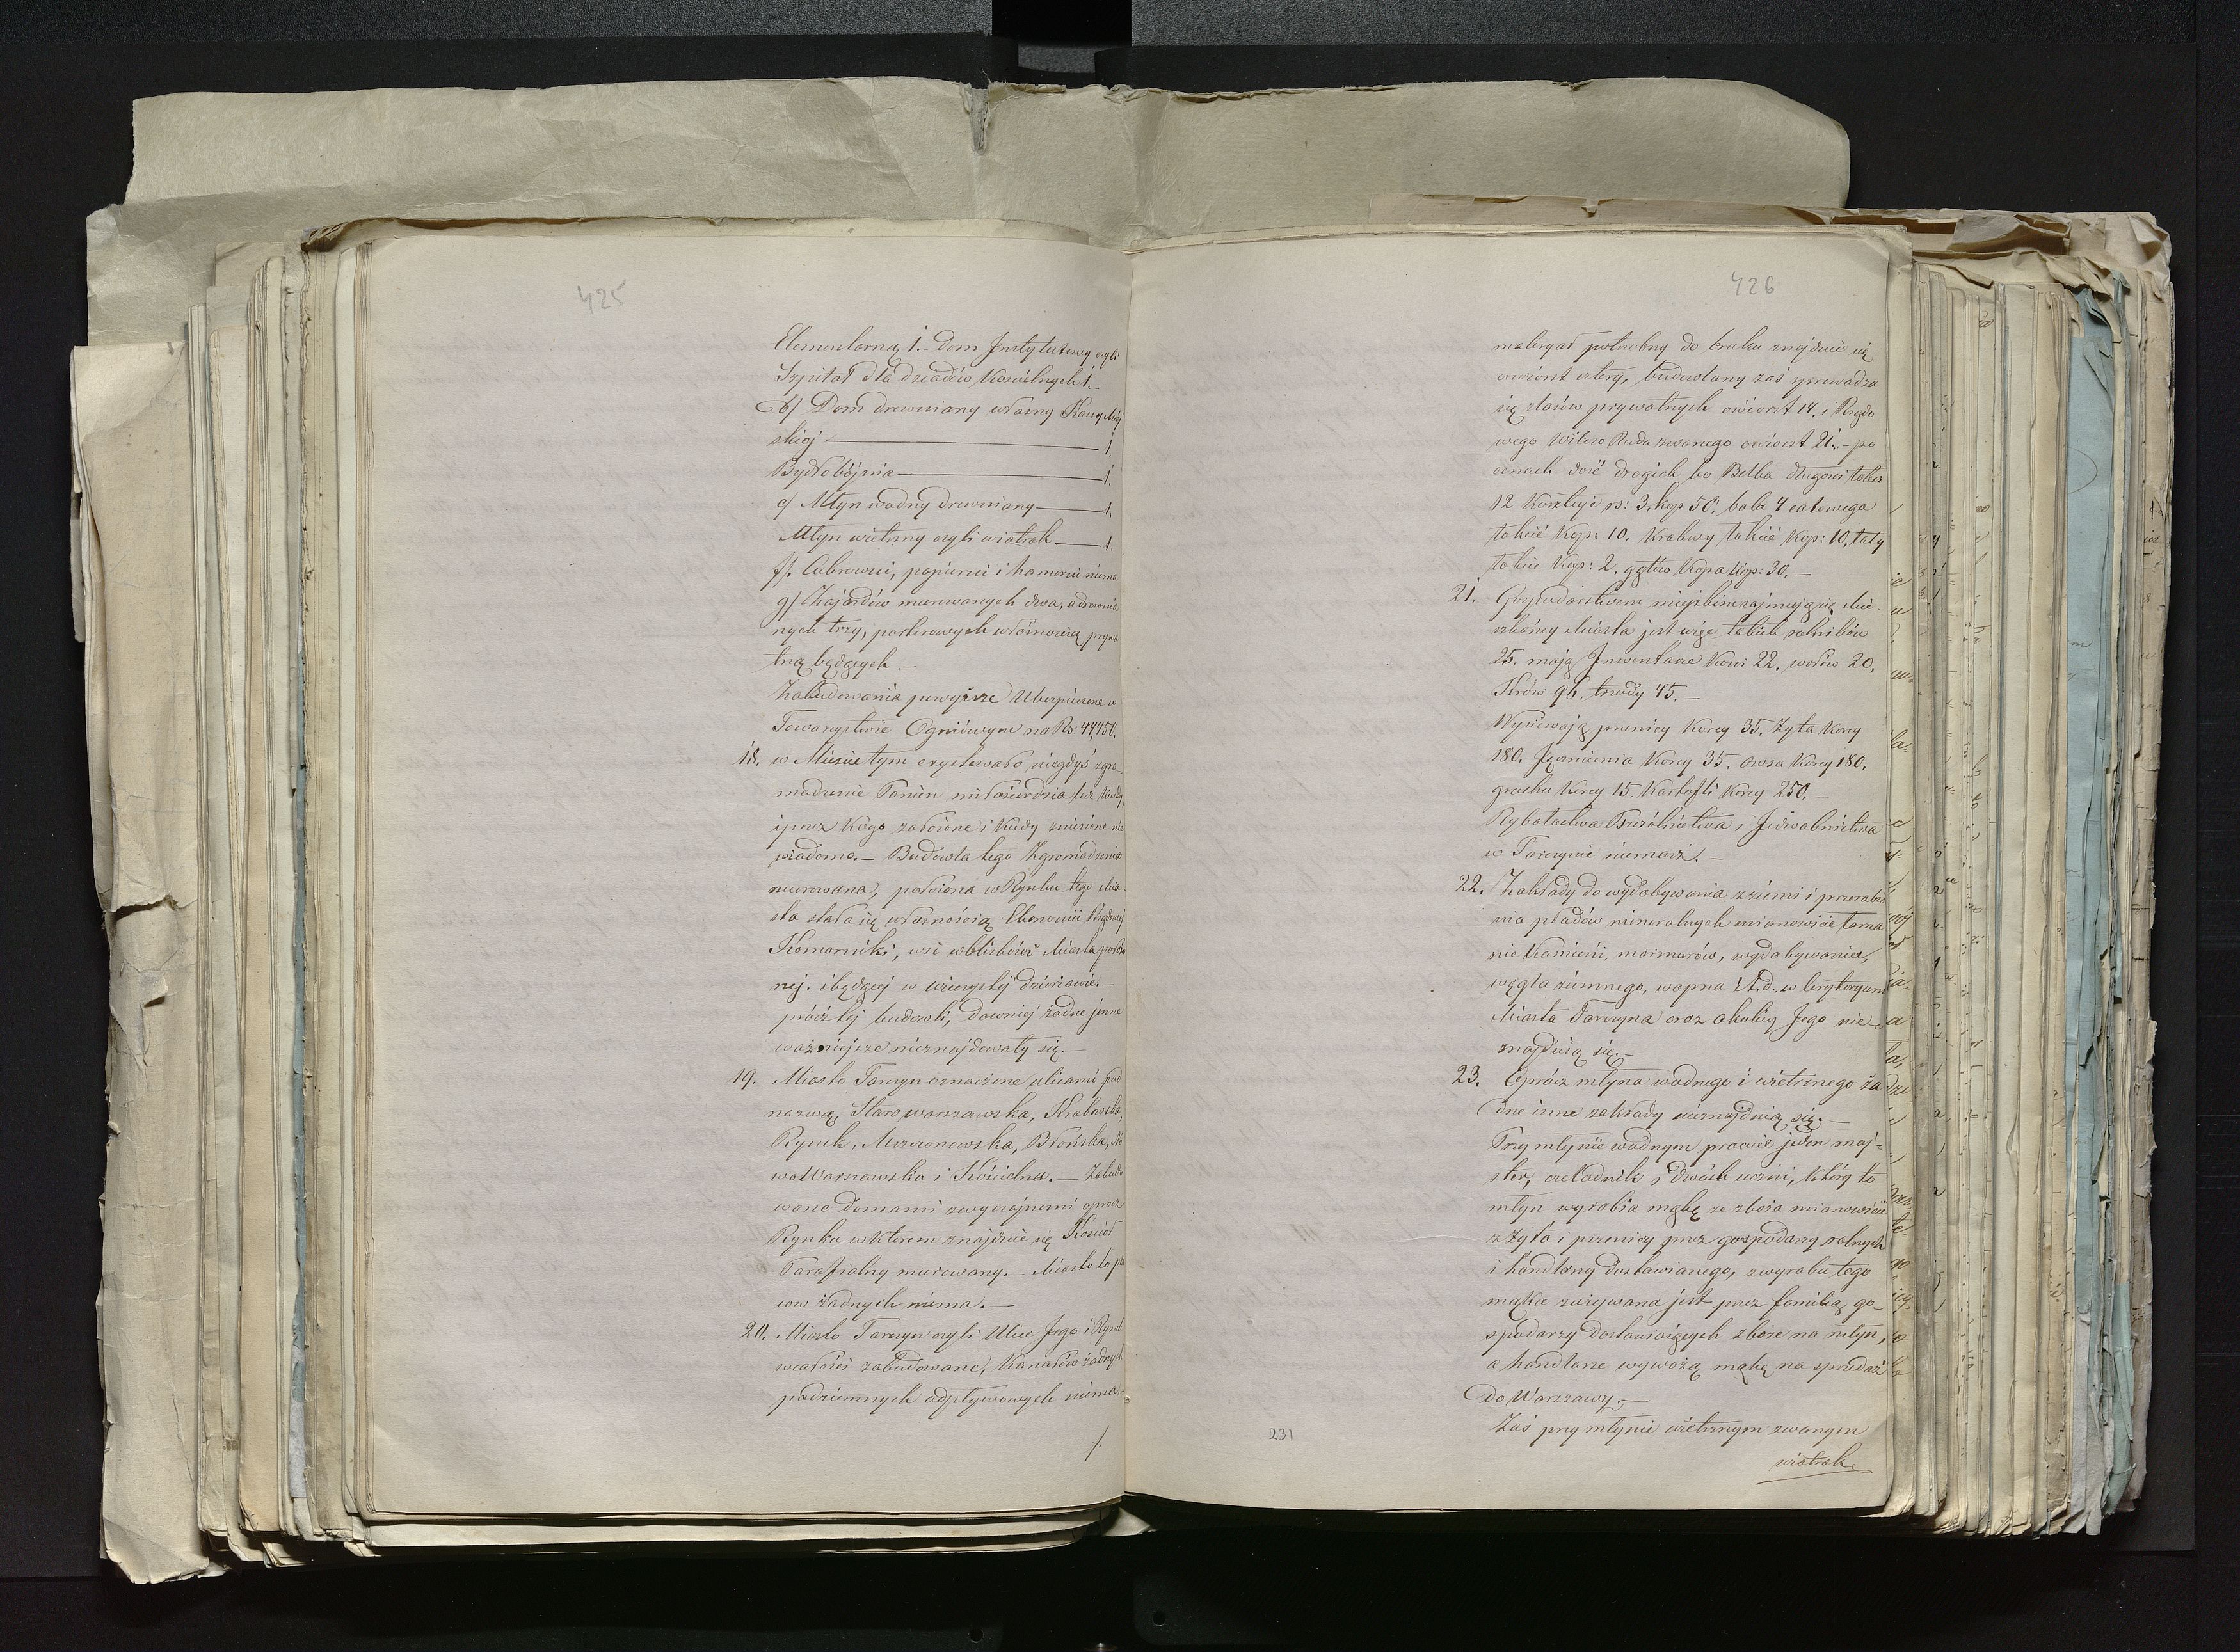 425
Elementarną 1. Dom Instytutowy czyli
Szpital dla dziadów Kościelnych 1.–
b/ Dom drewniany własny Kassy Miej
skiej 1.
Bydłobójnia 1.
e/ Młyn wodny drewniany 1.
Młyn wietrzny czyli wiatrak 1.
f/. Cukrowni, papierni i hamerni niema
g/ Zajazdów murowanych dwa, a drewnia
nych trzy, parterowych własnością prywa
tną będących.–
Zabudowania powyższe Ubezpieczone w
Towarzystwie Ogniowym na Rs: 44,450.
18. w Mieście tym exystowało niegdyś zgro-
madzenie Panien miłosierdzia lecz kiedy
i przez kogo założone i kiedy zniesione nie
wiadomo.– Budowla tego Zgromadzenia
murowana, położona w Rynku tego Mia-
sta stała się własnością Ekonomii Rządowej
Komorniki, wsi w bliskości Miasta położo
nej. i będącej w wieczystej dzierżawie.–
prócz tej budowli, dawniej żadne jnne
ważniejsze nieznajdowały się.–
19. Miasto Tarczyn oznaczone ulicami pod
nazwą, Starowarszawska, Krakowska,
Rynek, Mszczonowska, Błońska, No
wo Warszawska i Kościelna.– Zabudo
wane domami zwyczajnemi oprócz
Rynku w którem znajduie się Kościół
Parafialny murowany.– Miasto to pla
ców żadnych niema.–
20. Miasto Tarczyn czyli Ulice Jego i Rynek
w całości zabudowane, Kanałów żadnych
podziemnych odpływowych niema.
/.
426
materyał potrzebny do bruku znajduie się
o wiorst cztery, budowlany zaś sprowadza
się z lasów prywatnych o wiorst 14. i Rządo
wego Wilczo Ruda zwanego o wiorst 21.– po
cenach dość drogich bo Belka długości łokci
12 Kosztuje rs: 3. kop 50. bala 4 calowego
łokieć Kop: 10. Krokwy łokieć Kop: 10, łaty
łokieć Kop: 2. gątów Kopa Kop: 30.–
21. Gospodarstwem miejskim zajmują się Mie-
szkańcy Miasta jest więc takich rolników
25. mają Inwentarze Koni 22. wołów 20.
Krów 96. trzody 45.–
Wysiewają pszenicy Korcy 35. Żyta Korcy
180. Jęczmienia Korcy 35. Owsa Korcy 180.
grochu Korcy 15. Kartofli Korcy 250.–
Rybołactwa Pszczolnictwa i Jedwabnictwa
w Tarczynie niemasz.–
22. Zakłady do wydobywania z ziemi i przerabia
nia płodów mineralnych mianowicie łama
nie Kamieni, marmurów, wydobywanie,
węgla ziemnego, wapna i t.d. w terytoryum
Miasta Tarczyna oraz okolicy Jego nie-
znajdują się.–
23. Oprócz młyna wodnego i wietrznego ża
dne inne zakłady nieznajdują się.–
Przy młynie wodnym pracuie jeden maj-
ster, czeladnik i dwóch uczni, który to
młyn wyrabia mąkę ze zboża mianowicie
z żyta i pszenicy przez gospodarzy rolnych
i handlarzy dostawianego, z wyrobu tego
mąka zużywana jest przez familią go-
spodarzy dostawiaiących zboże na młyn,
a handlarze wywożą mąkę na sprzedaż
do Warszawy.–
Zaś przy młynie wietrznym zwanym
wiatrak
231